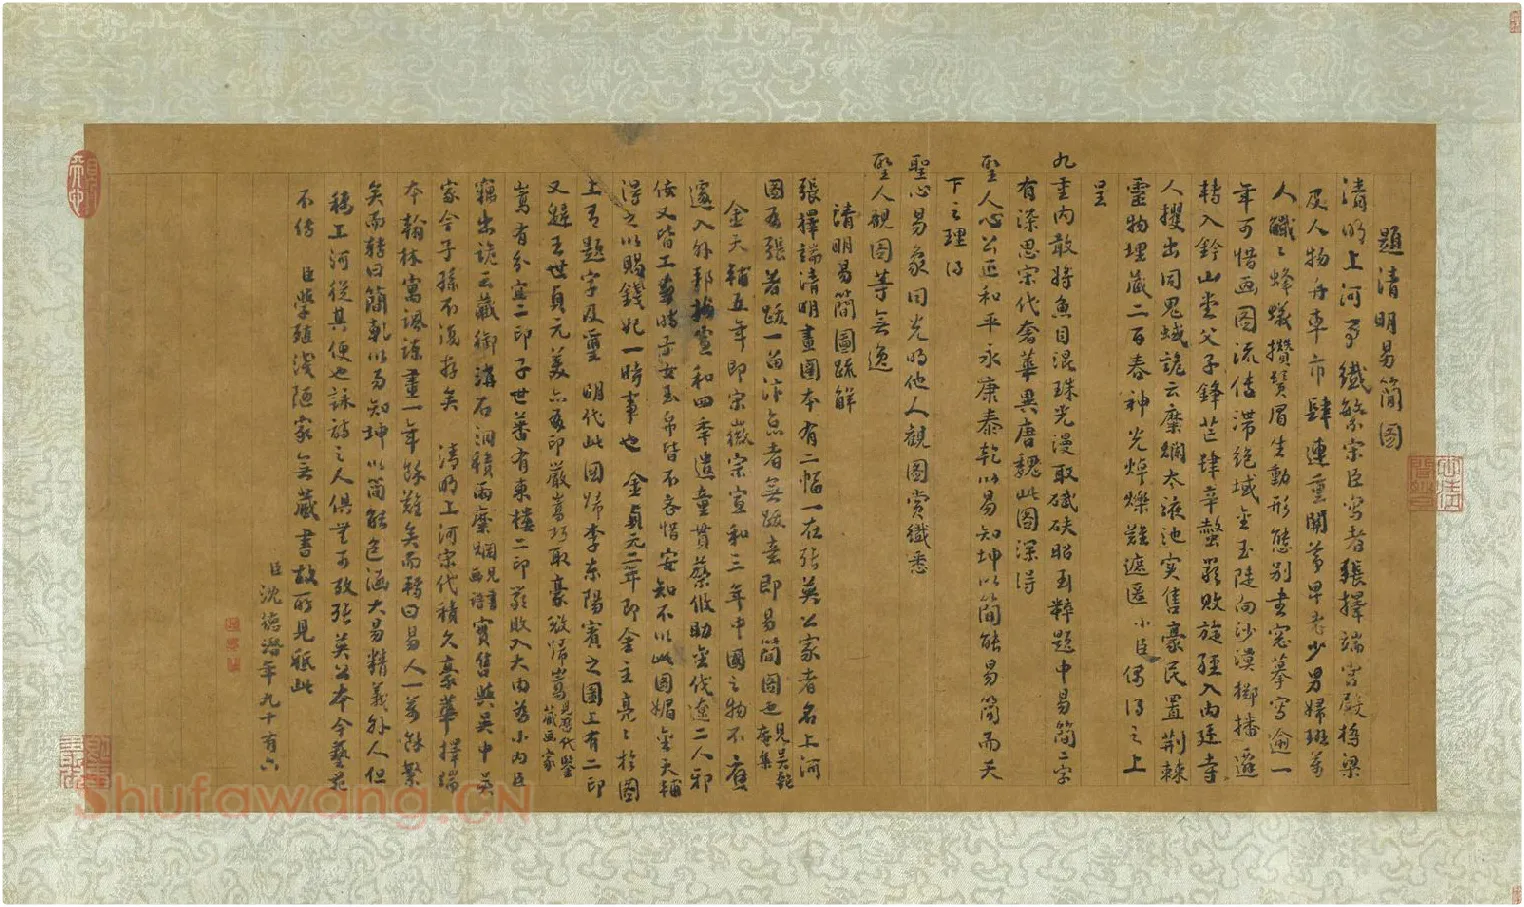 題清明易簡圖
清明上河予纖繁宋臣寫者張擇端宮殿橋梁
及人物舟車市肆連闤闠卑老少男婦班萬
人纖纖蜂蟻攢鬚眉生動形態別畫窓摹寫逾一
年可惜画圖流傳滞絶域金玉陡向沙漠擲播遷
轉入鈐山堂父子鋒芒肆辛螫嚴敗旋經入内廷寺
人攫出同鬼蜮詭云糜爛太液池実售豪民置荆棘
靈物埋蔵二百春神光焯爍難遮匿小臣偶得之上
呈
九重内敢將魚目混珠光漫取碔砆昭玉粹題中易簡二字
有深思宋代奢華異唐魏此圖深得
聖人心公正和平永康泰乾以易知坤以簡能易簡而天
下之理得
聖心易象同光明他人観圖賞纖悉
聖人観图等無逸
清明易簡圖跋解
張擇端清明畫圖本有二幅一在張英公家者名上河
圖為張著跋一苗渟点者無跋去即易簡圖也見吳匏菴集
金天輔五年即宋徽宗宣和三年中國之物不應
遽入外邦按宣和四季遣童貫蔡攸助金伐遼二人邪
佞又皆工画時子女玉帛皆不吝惜安知不以此圖媚金天輔
得之以賜錢妃一時事也 金貞元二年即金主亮之於圖
上有題字及璽 明代此圖歸李東陽賓之圖上有二印
又疑王世貞元美亦為印嚴嵩巧取豪效歸嵩見歷代鑒蔵画家
嵩有分宜二印子世蕃有東樓二印嚴敗入大内為小内臣
竊出詭云藏御溝石洞積雨糜爛見書画譜實售與吳中吳
家今子孫不復存矣 清明上河宋代積久豪華擇端
本翰林寓諷諫畫一年餘難矣而轉曰易人一萬餘繁
矣而轉曰簡乾以易知坤以簡能包涵大易精義外人但
稱上河從其便也詠詩之人俱無可攷張英公本今藝苑
不傳 臣學殖淺陋家無藏書故所見祗此
臣沈德潛年九十有六
Shufawang.CN